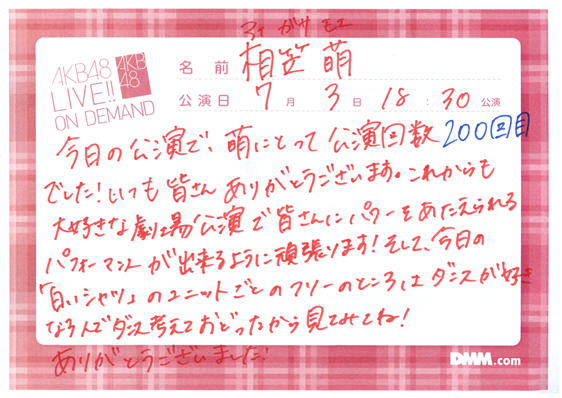 アイ がサ モエ
AKB48
LIVE!!
ON DEMAND
AKB
48
名 前 相笠 萌
公演日 7 月 3 日 18 : 30 公演
今日の公演で、萌にとって公演回数200回目
でした!いつも皆さんありがとうございます。これからも
大好きな劇場公演で皆さんにパワーをあたえられる
パフォーマンスが出来るように頑張ります!そして、今日の
「白いシャツ」のユニットごとのフリーのところはダンスが好き
な3人でダンス考えておどったから見てみてね!
ありがとうございました!
DMM.com